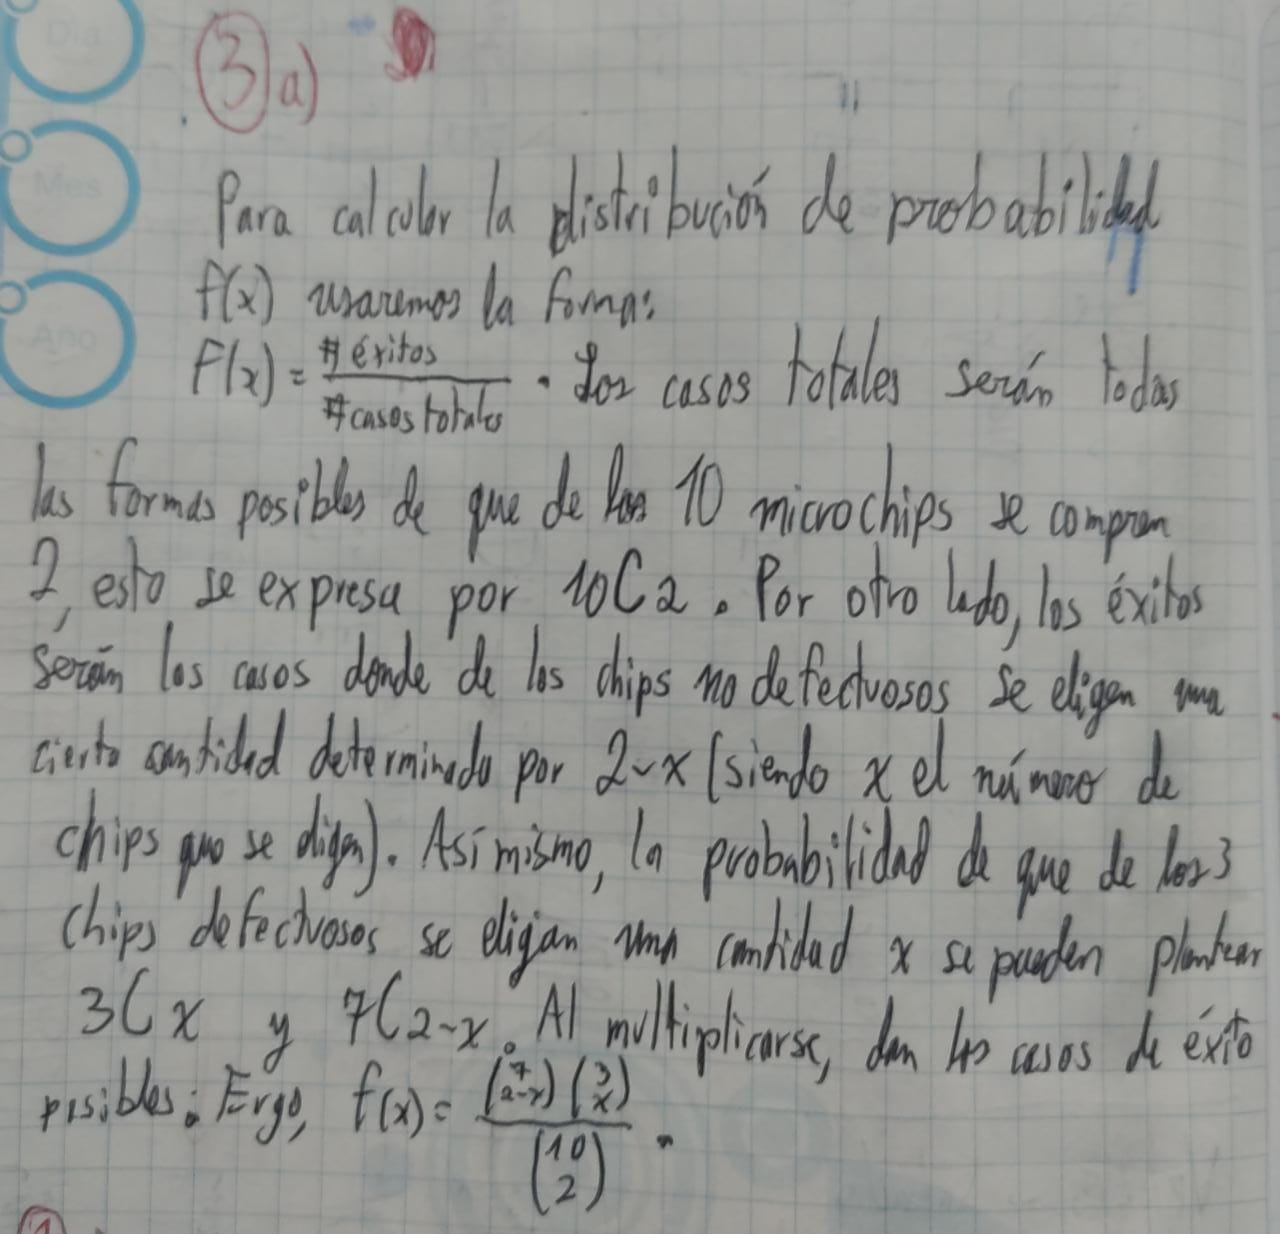 Día
Mes
Año
3) a)
Para calcular la distribución de probabilidad
f(x) usaremos la forma:
F(x) = # éxitos / # casos totales . Los casos totales serán todas
las formas posibles de que de los 10 microchips se compren
2, esto se expresa por 10C2. Por otro lado, los éxitos
serán los casos donde de los chips no defectuosos se eligen una
cierta cantidad determinada por 2-x (siendo x el número de
chips que se eligen). Así mismo, la probabilidad de que de los 3
chips defectuosos se eligan una cantidad x se pueden plantear
3Cx y 7C2-x. Al multiplicarse, dan los casos de éxito
posibles. Ergo, f(x) = (7 2-x) (3 x) / (10 2) .